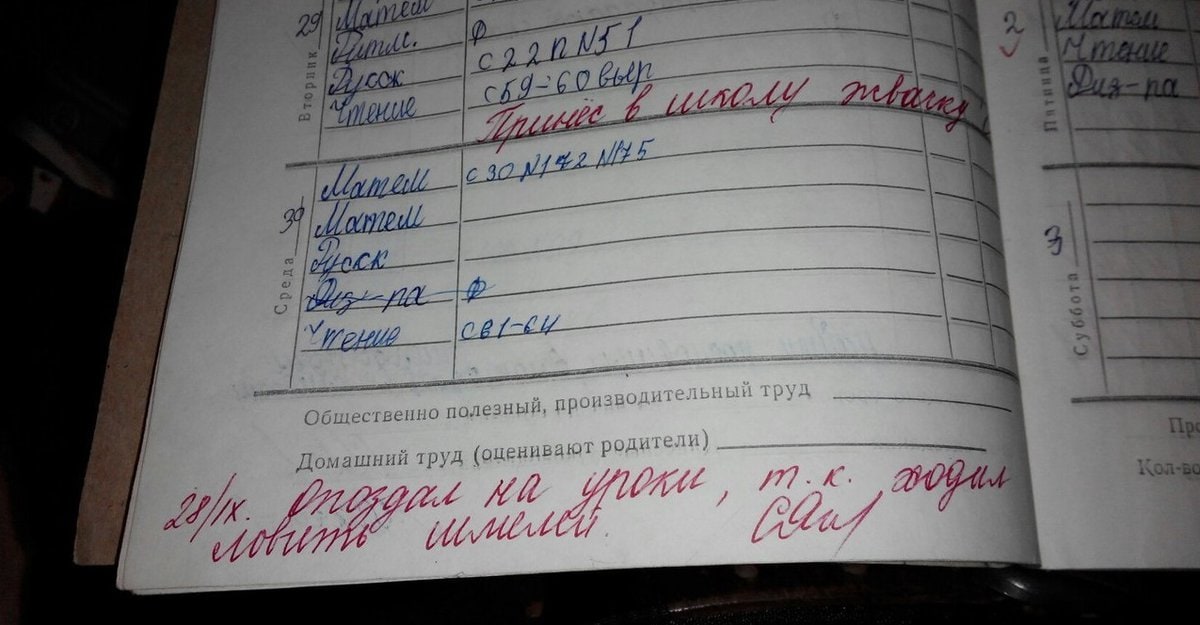 Вторник 29
Матем
Ритм. Ф
Русск с 22 п N 51
Чтение с 59-60 выр
Принёс в школу жвачку
Среда 30
Матем с 30 N 172 N 175
Матем
Русск
Физ-ра Ф
Чтение с 61-64
Общественно полезный, производительный труд
Домашний труд (оценивают родители)
28/IX. Опоздал на уроки, т.к. ходил
ловить шмелей.
Пятница 2
Матем
Чтение
Физ-ра
Суббота 3
Про
Кол-во